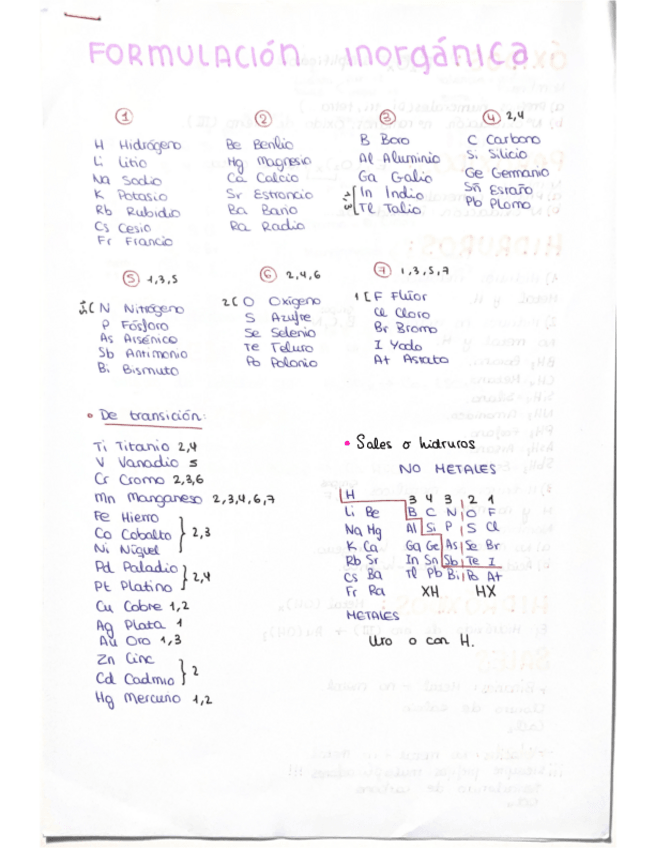 FORMULACIÓN inorgánica
① ② ③ ④ 2,4
H Hidrógeno
Li Litio
Na Sodio
K Potasio
Rb Rubidio
Cs Cesio
Fr Francio
Be Berilio
Hg Magnesio
Ca Calcio
Sr Estroncio
Ba Bario
Ra Radio
B Boro
Al Aluminio
Ga Galio
In Indio
Tl Talio
C Carbono
Si Silicio
Ge Germanio
Sn Estaño
Pb Plomo
⑤ 1,3,5 ⑥ 2,4,6 ⑦ 1,3,5,7
N Nitrógeno
P Fósforo
As Arsénico
Sb Antimonio
Bi Bismuto
2[O Oxígeno
S Azufre
Se Selenio
Te Teluro
Po Polonio
1[F Flúor
Cl Cloro
Br Bromo
I Yodo
At Astato
• De transición:
Ti Titanio 2,4
V Vanadio 5
Cr Cromo 2,3,6
Mn Manganeso 2,3,4,6,7
Fe Hierro
Co Cobalto } 2,3
Ni Níquel
Pd Paladio
Pt Platino } 2,4
Cu Cobre 1,2
Ag Plata 1
Au Oro 1,3
Zn Cinc
Cd Cadmio } 2
Hg Mercurio 1,2
• Sales o hidruros
NO METALES
H 3 4 3 2 1
Li Be B C N O F
Na Hg Al Si P S Cl
K Ca Ga Ge As Se Br
Rb Sr In Sn Sb Te I
Cs Ba Tl Pb Bi Po At
Fr Ra XH HX
METALES
Uro o con H.